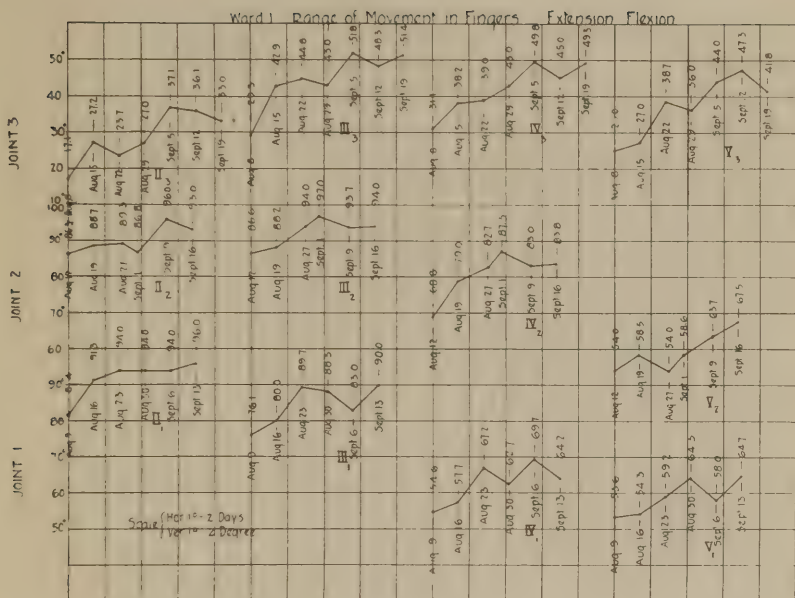 Ward 1 Range of Movement in Fingers Extension Flexion
JOINT 3
50°
40
30
20
17.1
Aug 15 27.2
Aug 22 23.7
Aug 29 27.0
Sept 5 37.1
Sept 12 36.1
Sept 19 33.0
II
Aug 8
Aug 15 42.9
Aug 22 44.8
Aug 29 43.0
Sept 5 51.8
Sept 12 48.3
Sept 19 51.4
III 3
Aug 8 31.1
Aug 15 38.2
Aug 22 39.0
Aug 29 43.0
Sept 5 49.8
Sept 12 45.0
Sept 19 49.3
IV 3
Aug 8
Aug 15 27.0
Aug 22 38.7
Aug 29 36.0
Sept 5 44.0
Sept 12 47.3
Sept 19 41.8
V 3
JOINT 2
100°
90°
80
70
60
Aug 19 88.7
Aug 27 89.3
Sept 1 86.8
96.0
Sept 16 93.0
II 2
Aug 12 86.6
Aug 19 88.2
Aug 27 94.0
Sept 1 97.0
Sept 9 93.7
Sept 16 94.0
III 2
Aug 12 68.8
Aug 19 79.0
Aug 27 82.7
Sept 1 87.5
Sept 9 83.0
Sept 16 83.8
IV 2
Aug 12 54.0
Aug 19 58.5
Aug 27 54.0
Sept 1 58.6
Sept 9 63.7
Sept 16 67.5
V 2
JOINT 1
90°
80
70°
60
50°
Aug 9 81.4
Aug 16 91.3
Aug 23 94.0
Aug 30 94.0
Sept 6 94.0
Sept 13 96.0
II
Aug 9 76.1
Aug 16 80.0
Aug 23 89.7
Aug 30 88.3
Sept 6 83.0
Sept 13 90.0
III 1
Aug 9 54.6
Aug 16 57.7
Aug 23 67.2
Aug 30 62.7
Sept 6 69.7
Sept 13 64.2
IV 1
Aug 9 53.6
Aug 16 54.3
Aug 23 59.2
Aug 30 64.3
Sept 6 58.0
Sept 13 64.7
V 1
Scale Hor 1" = 2 Days
Ver 1" = 2 Degree